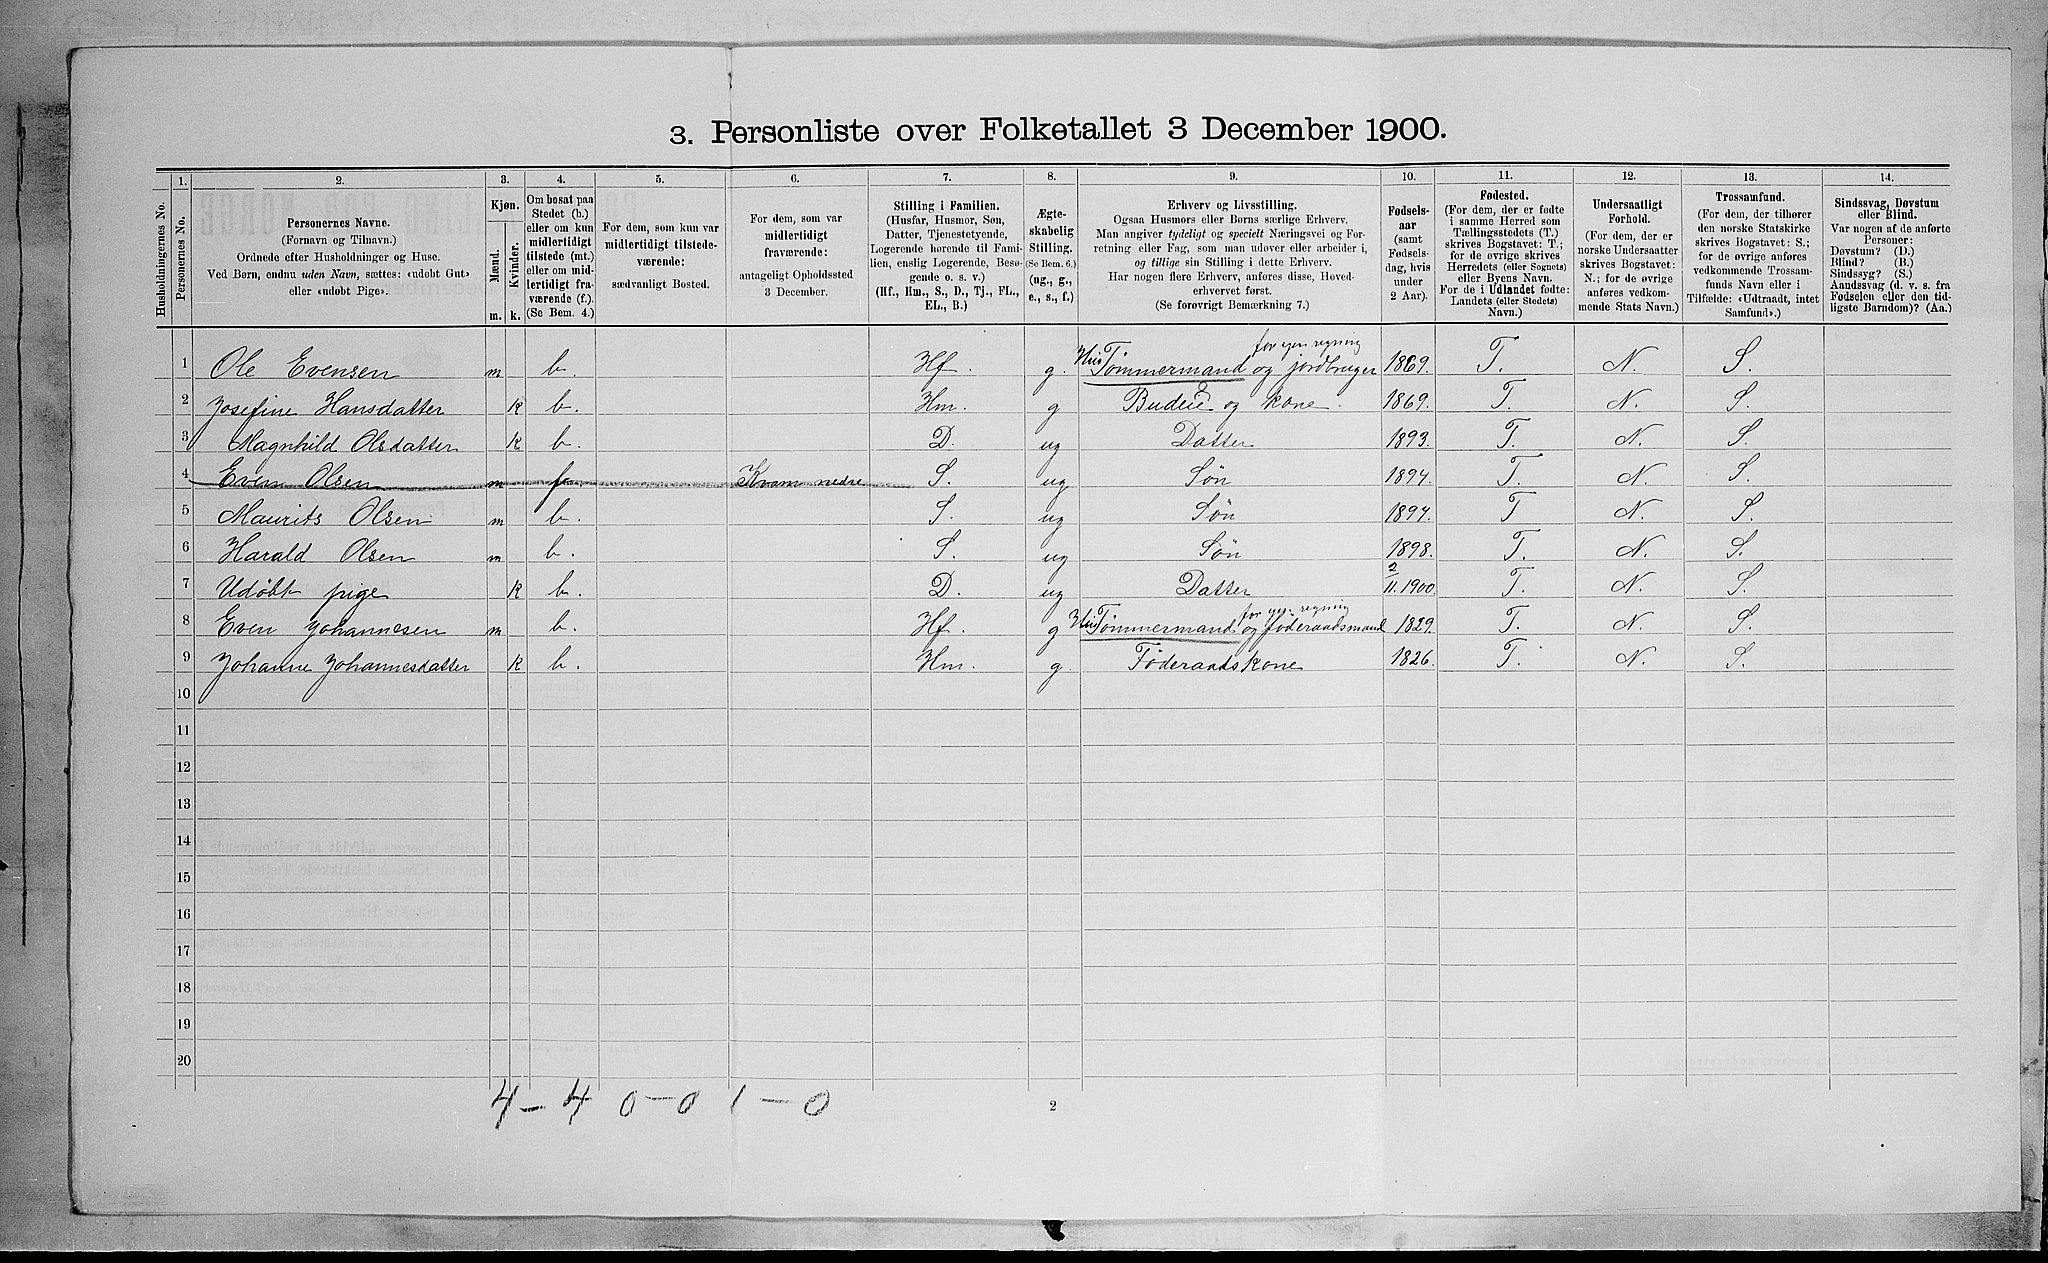 3. Personliste over Folketallet 3 December 1900.
1. 2. 3. 4. 5. 6. 7. 8. 9. 10. 11. 12. 13. 14.
Husholdningernes No.
Personernes No.
Personernes Navne.
(Fornavn og Tilnavn.)
Ordnede efter Husholdninger og Huse.
Ved Børn, endnu uden Navn, sættes: «udøbt Gut»
eller «udøbt Pige».
Kjøn.
Mænd.
Kvinder.
m. k.
Om bosat paa
Stedet (b.)
eller om kun
midlertidigt
tilstede (mt.)
eller om mid-
lertidigt fra-
værende (f.).
(Se Bem. 4.)
For dem, som kun var
midlertidigt tilstede-
værende:
sædvanligt Bosted.
For dem, som var
midlertidigt
fraværende:
antageligt Opholdssted
3 December.
Stilling i Familien.
(Husfar, Husmor, Søn,
Datter, Tjenestetyende,
Logerende hørende til Fami-
lien, enslig Logerende, Besø-
gende o. s. v.)
(Hf., Hm., S., D., Tj., FL.,
EL., B.)
Ægte-
skabelig
Stilling.
(Se Bem. 6.)
(ug., g.,
e., s., f.)
Erhverv og Livsstilling.
Ogsaa Husmors eller Børns særlige Erhverv.
Man angiver tydeligt og specielt Næringsvei og For-
retning eller Fag, som man udøver eller arbeider i,
og tillige sin Stilling i dette Erhverv.
Har nogen flere Erhverv, anføres disse, Hoved-
erhvervet først.
(Se forøvrigt Bemærkning 7.)
Fødsels-
aar
(samt
Fødsels-
dag, hvis
under
2 Aar).
Fødested.
(For dem, der er fødte
i samme Herred som
Tællingsstedets (T.)
skrives Bogstavet: T.;
for de øvrige skrives
Herredets (eller Sognets)
eller Byens Navn.
For de i Udlandet fødte:
Landets (eller Stedets)
Navn.)
Undersaatligt
Forhold.
(For dem, der er
norske Undersaatter
skrives Bogstavet:
N.; for de øvrige
anføres vedkom-
mende Stats Navn.)
Trossamfund.
(For dem, der tilhører
den norske Statskirke
skrives Bogstavet: S.;
for de øvrige anføres
vedkommende Trossam-
funds Navn eller i
Tilfælde: «Udtraadt, intet
Samfund».)
Sindssvag, Døvstum
eller Blind.
Var nogen af de anførte
Personer:
Døvstum? (D.)
Blind? (B.)
Sindssyg? (S.)
Aandssvag (d. v. s. fra
Fødselen eller den tid-
ligste Barndom)? (Aa.)
for egen regning
1 Ole Evensen m b. Hf. g. Hus Tømmermand og jordbruger 1869. T. N. S.
2 Josefine Hansdatter k b. Hm. g Budeie og kone. 1869. T. N. S.
3 Magnhild Olsdatter k b. D. ug Datter 1893. T. N. S.
4 Even Olsen m f. Kvam nedre S. ug Søn 1894. T. N. S.
5 Maurits Olsen m b. S. ug Søn 1897. T N. S.
6 Harald Olsen m b. S. ug Søn 1898. T. N. S.
7 Udøbt pige k b. D. ug Datter 2/11.1900. T. N. S.
for egen regning
8 Even Johannesen m b. Hf. g Hus Tømmermand og føderaadsmand 1829. T. N. S.
9 Johanne Johannesdatter k b. Hm. g. Føderaadskone 1826. T. N. S.
10
11
12
13
14
15
16
17
18
19
20
4 - 4 0 - 0 1 - 0
2